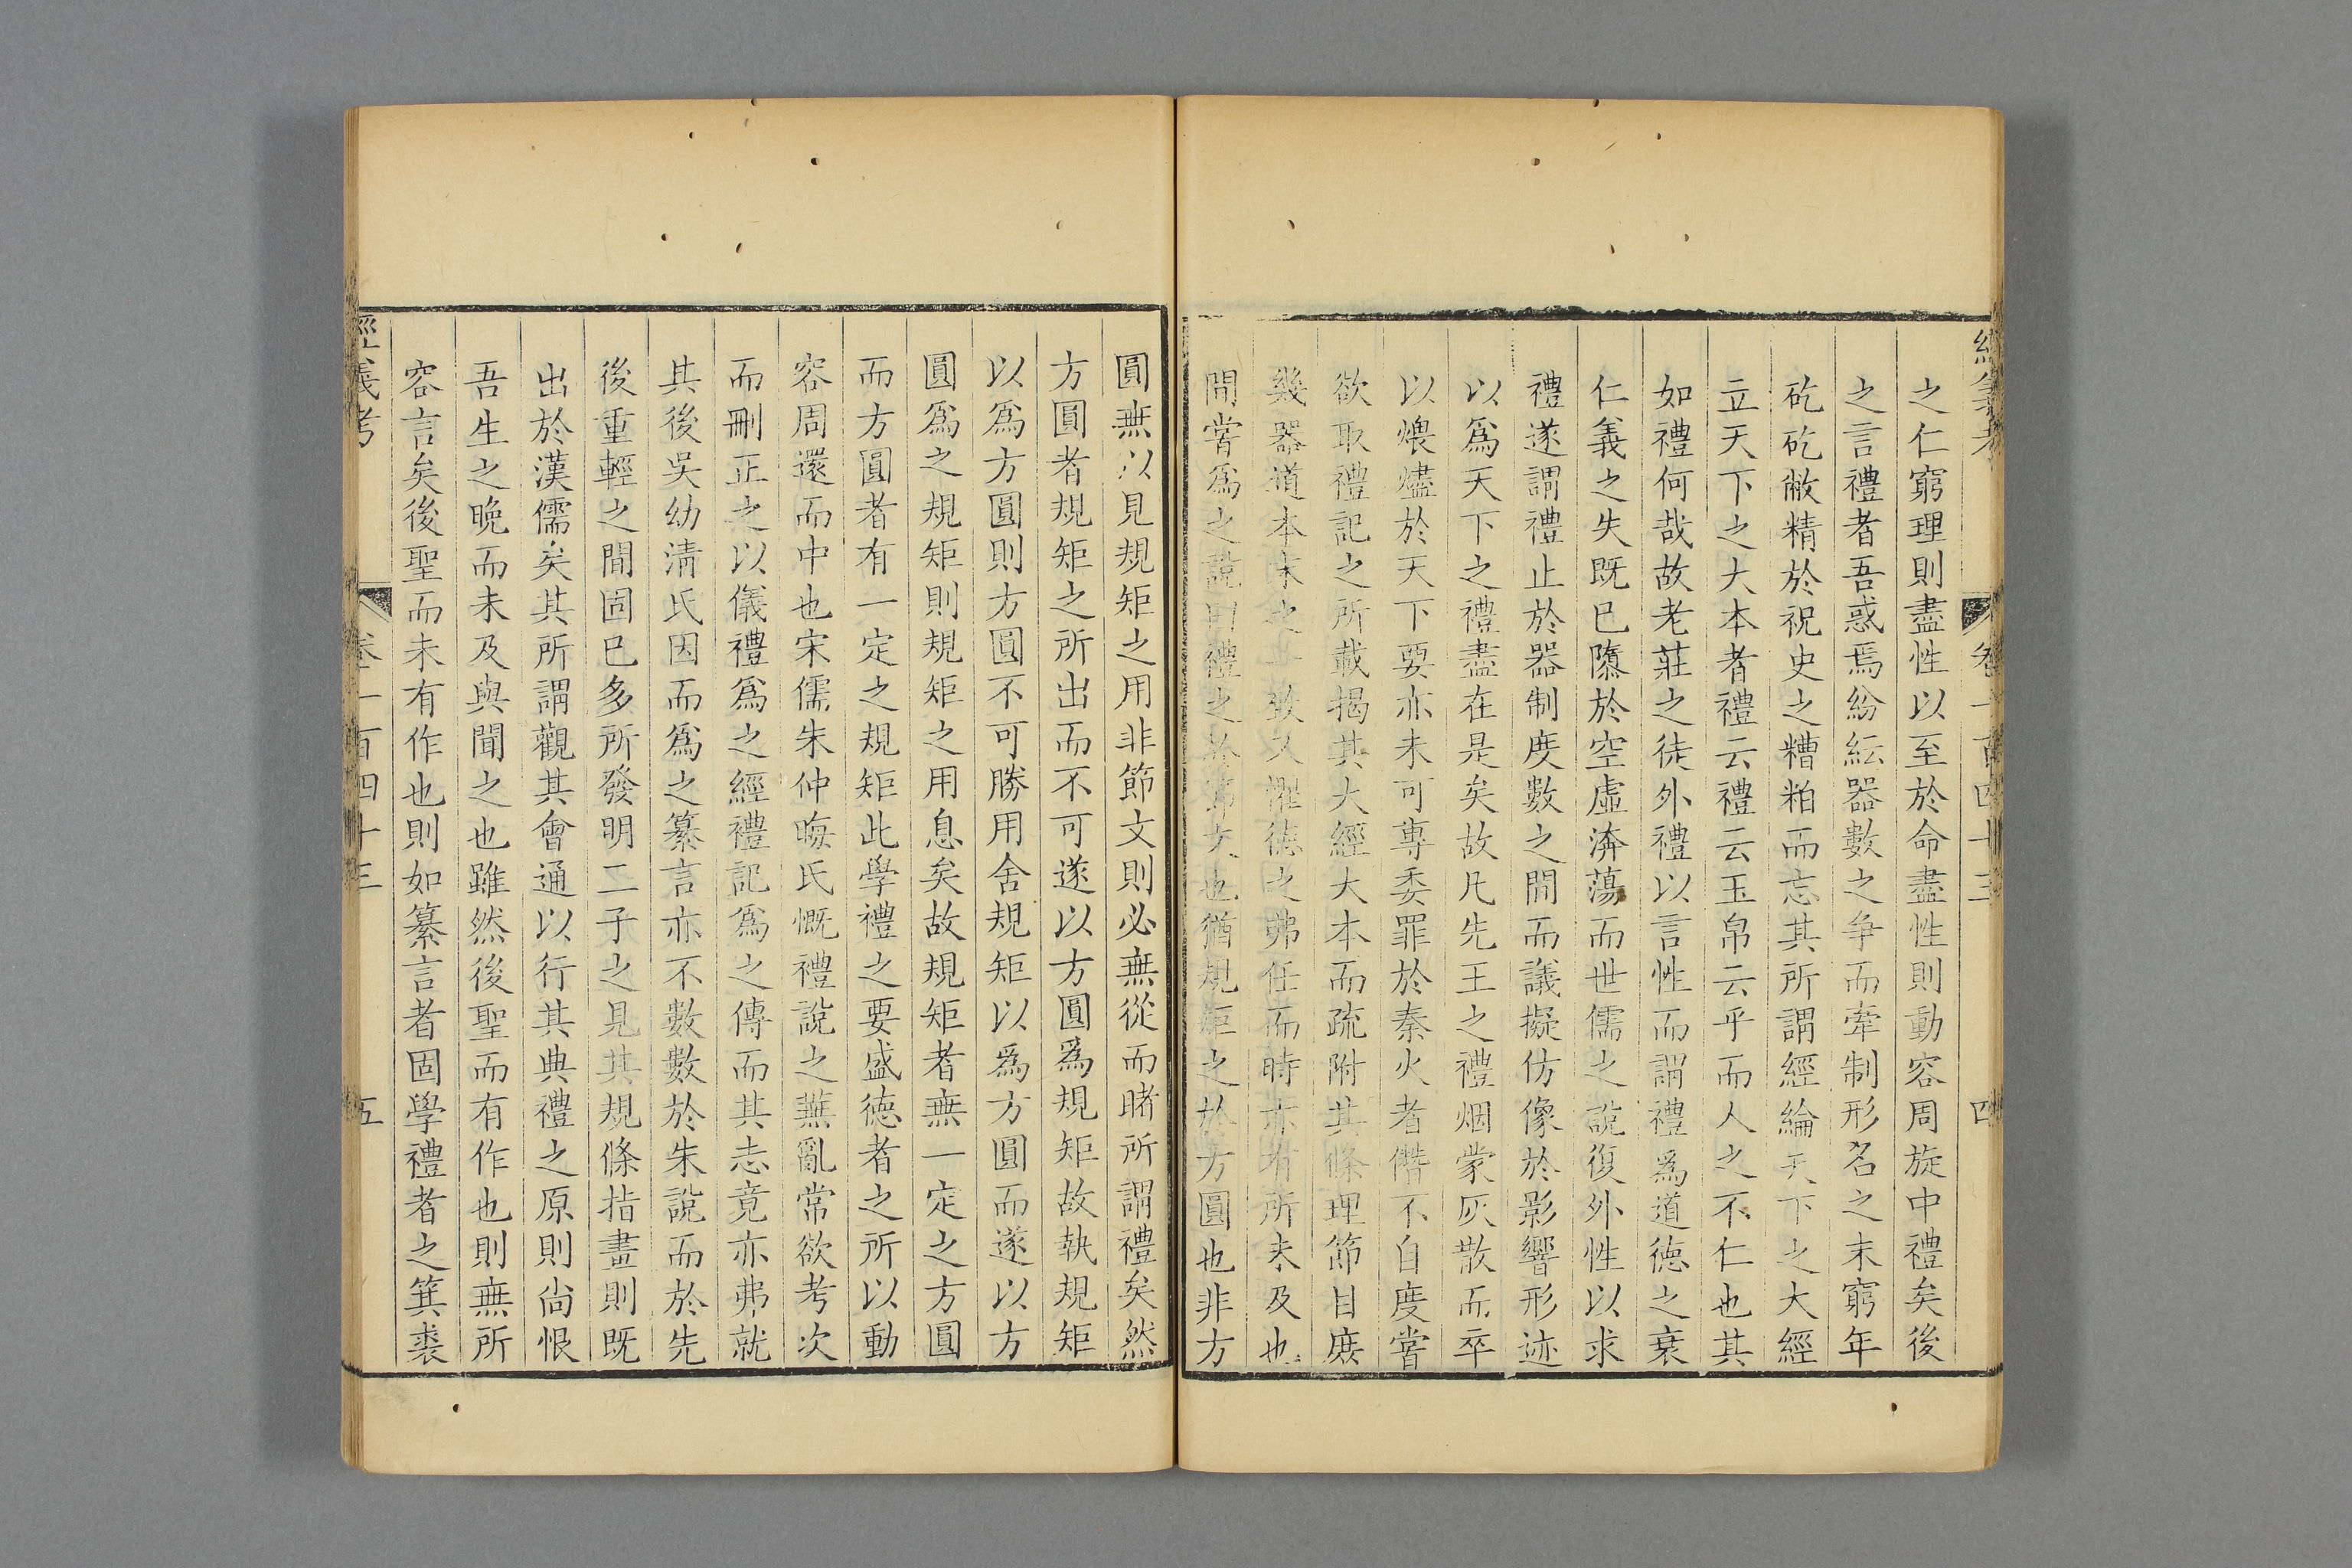 經義考 卷一百四十三 四
之仁窮理則盡性以至於命盡性則動容周旋中禮矣後
之言禮者吾惑焉紛紜器數之爭而牽制形名之末窮年
矻矻敝精於祝史之糟粕而忘其所謂經綸天下之大經
立天下之大本者禮云禮云玉帛云乎而人之不仁也其
如禮何哉故老莊之徒外禮以言性而謂禮爲道徳之衰
仁義之失既已隳於空虛渀蕩而世儒之說復外性以求
禮遂謂禮止於器制度數之間而議擬仿像於影響形迹
以爲天下之禮盡在是矣故凡先王之禮烟蒙灰散而卒
以煨燼於天下要亦未可專委罪於秦火者僭不自度嘗
欲取禮記之所載揭其大經大本而疏附其條理節目庶
幾器道本末之一致又懼徳之弗任而時亦有所未及也
間嘗爲之說曰禮之於節文也猶規矩之於方圓也非方
圓無以見規矩之用非節文則必無從而睹所謂禮矣然
方圓者規矩之所出而不可遂以方圓爲規矩故執規矩
以爲方圓則方圓不可勝用舍規矩以爲方圓而遂以方
圓爲之規矩則規矩之用息矣故規矩者無一定之方圓
而方圓者有一定之規矩此學禮之要盛徳者之所以動
容周還而中也宋儒朱仲晦氏慨禮說之蕪亂常欲考次
而刪正之以儀禮爲之經禮記爲之傳而其志竟亦弗就
其後吳幼清氏因而爲之纂言亦不數數於朱說而於先
後重輕之間固已多所發明二子之見其規條指畫則既
出於漢儒矣其所謂觀其會通以行其典禮之原則尙恨
吾生之晚而未及與聞之也雖然後聖而有作也則無所
容言矣後聖而未有作也則如纂言者固學禮者之箕裘
經義考 卷一百四十三 五